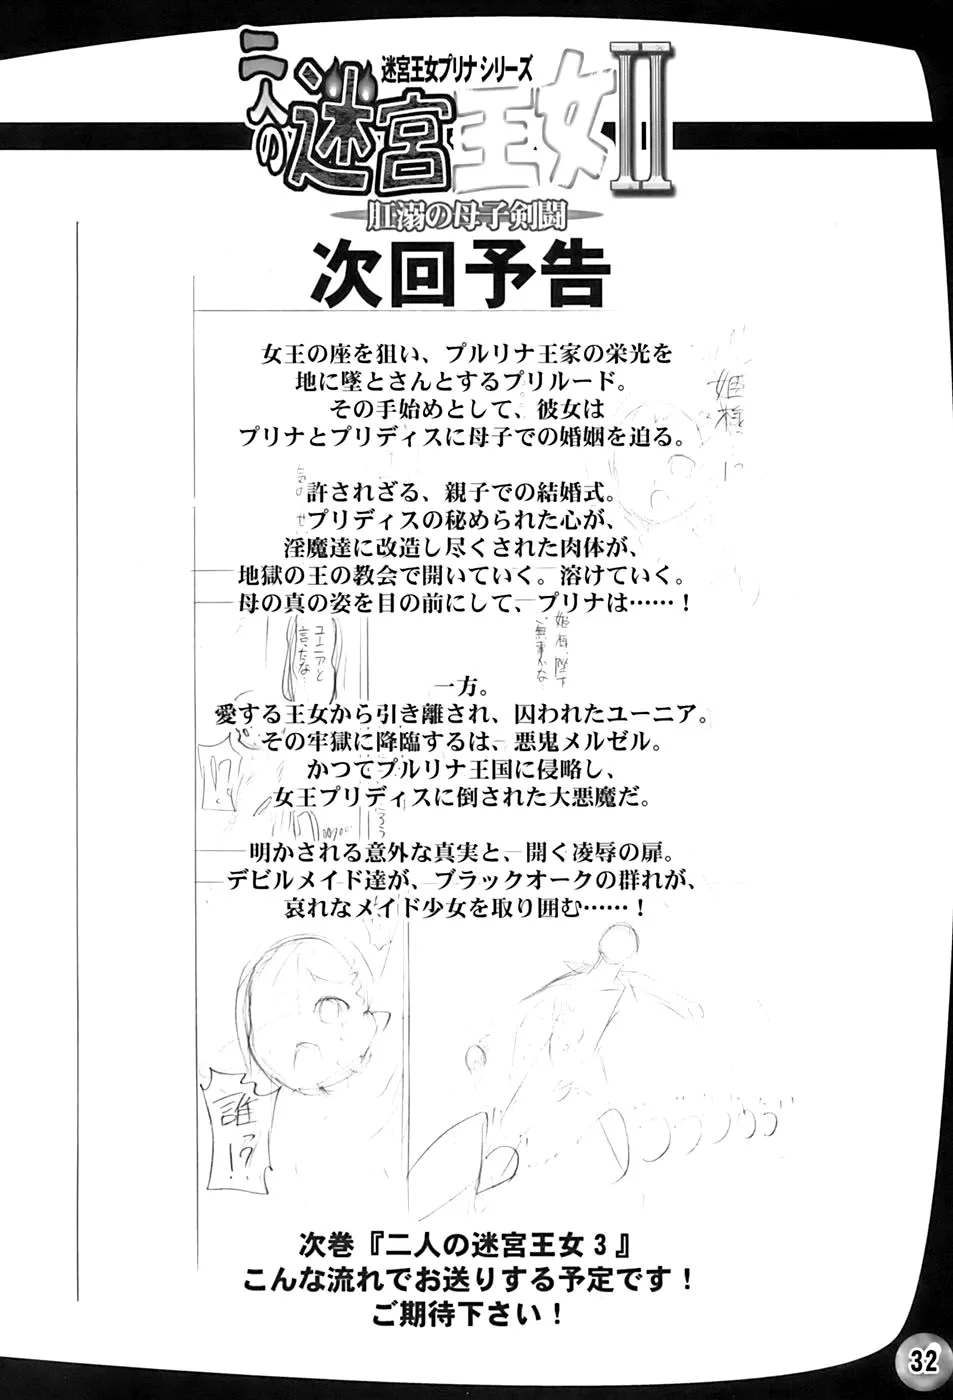 迷宮王女プリナシリーズ
二人の迷宮王女II
肛溺の母子剣闘
次回予告
女王の座を狙い、プルリナ王家の栄光を
地に墜とさんとするプリルード。
その手始めとして、彼女は
プリナとプリディスに母子での婚姻を迫る。
許されざる、親子での結婚式。
プリディスの秘められた心が、
淫魔達に改造し尽くされた肉体が、
地獄の王の教会で開いていく。溶けていく。
母の真の姿を目の前にして、プリナは……！
一方。
愛する王女から引き離され、囚われたユーニア。
その牢獄に降臨するは、悪鬼メルゼル。
かつてプルリナ王国に侵略し、
女王プリディスに倒された大悪魔だ。
明かされる意外な真実と、開く凌辱の扉。
デビルメイド達が、ブラックオークの群れが、
哀れなメイド少女を取り囲む……！
姫様
姫様、陛下
ご無事かな…
ユーニアと
言ったな…
誰!?
次巻『二人の迷宮王女３』
こんな流れでお送りする予定です！
ご期待下さい！
32